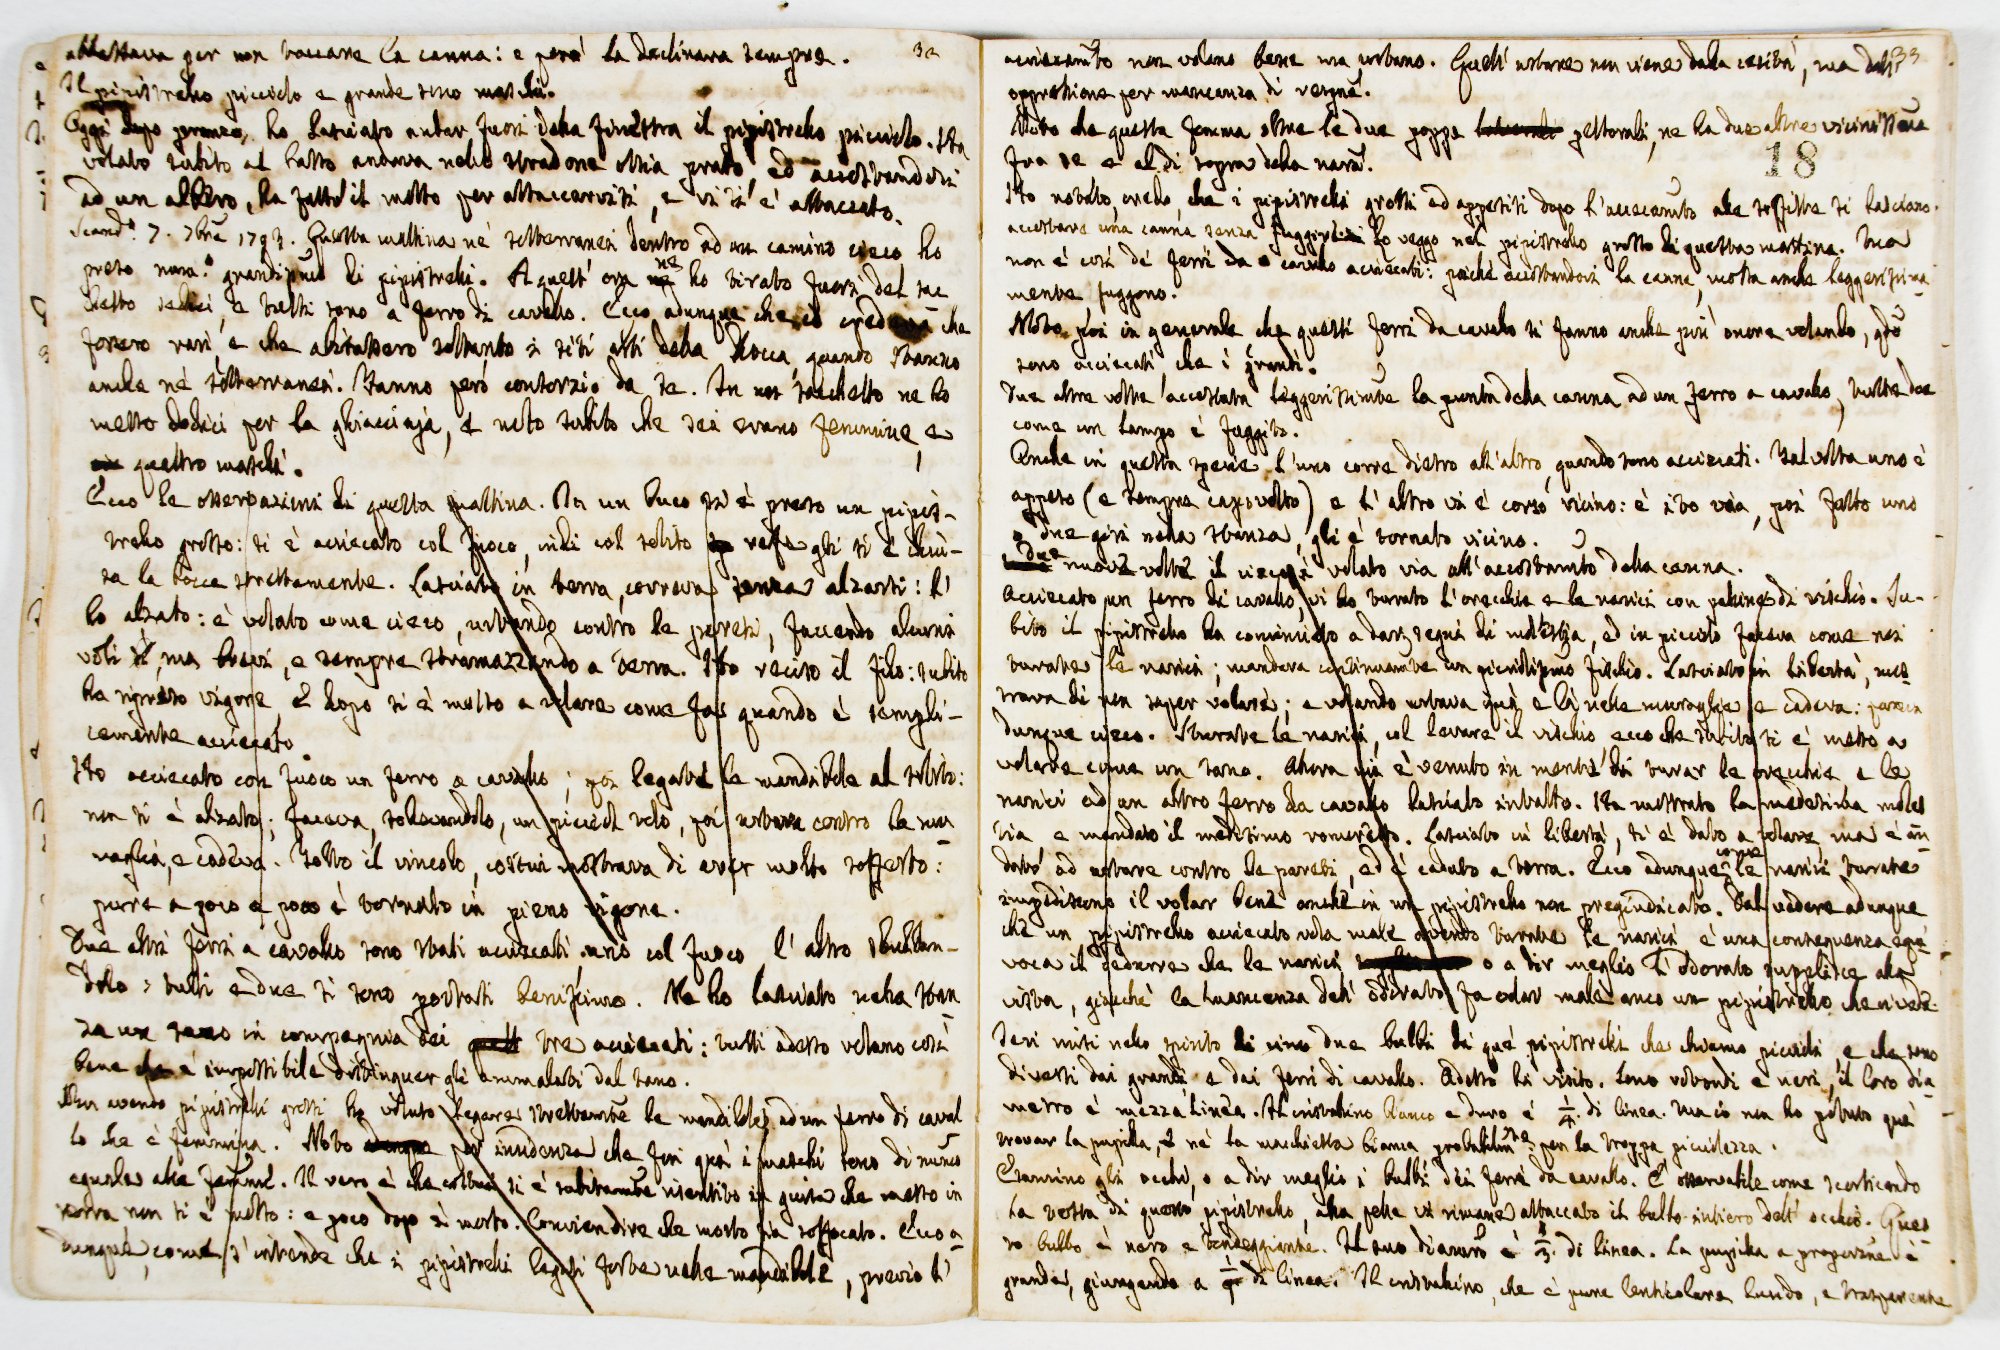 abbassava per non toccare la canna: e però la declinava sempre. 32
Il pipistrello picciolo e grande sono maschi.
Oggi dopo pranzo, ho lasciato andar fuori della finestra il pipistrello picciolo. Ha
volato subito al basso andava nello stradone ossia prato, ed accostandosi
ad un albero, ha fatto il motto per attaccarvisi, e vi si è attaccato.
Scand.º 7. 7bre 1793. Questa mattina ne' sotterranei dentro ad un camino cieco ho
preso num.º grandissimo di pipistrelli. A quest' ora ne ho tirato fuori del sac
chetto sedici, e tutti sono a ferro di cavallo. Ecco adunque che io credeva che
fossero rari, e che abitassero soltanto i siti alti della Rocca, quando stanno
anche ne' sotterranei. Fanno però consorzio da se. In un sacchetto ne ho
messo dodici per la ghiacciaja, e noto subito che sei erano femmine, e
quattro maschi.
Ecco le osservazioni di questa mattina. In un buco si è preso un pipis-
trello grosso: si è acciecato col fuoco, indi col solito refe gli si è chiu-
sa la bocca strettamente. Lasciato in terra, correva senza alzarsi: l'
ho alzato: è volato come cieco, urtando contro le pareti, facendo alcuni
voli sì, ma brevi, e sempre stramazzando a terra. Ho reciso il filo: subito
ha ripreso vigore e dopo si è messo a volare come fa quando è sempli-
cemente acciecato.
Ho acciecato con fuoco un ferro a cavallo; poi legate le mandibole al solito:
non si è alzato; faceva, sollevandolo, un picciol volo, poi urtava contro la mu
raglia, e cadeva. Tolto il vincolo, costui mostrava di aver molto sofferto:
purre a poco a poco è tornato in pieno vigore.
Due altri ferri a cavallo sono stati acciecati uno col fuoco l' altro sbulban-
dolo: tutti e due si sono portati benissimo. Ne ho lasciato nella stan
za un sano in compagnia dei tre acciecati: tutti adesso volano così
bene che è impossibile distinguer gli ammalati dal sano.
Non avendo pipistrelli grossi ho voluto legare strettamte le mandibole ad un ferro di caval
lo che è femmina. Noto per incidenza che fin quì i maschi sono di num.º
eguale alle femmine. Il vero è che costui si è subitamte risentito in guisa che messo in
terra non si è mosso: e poco dopo è morto. Convien dire che morto sia soffocato. Ecco a-
dunque, come s' intende che i pipistrelli legati forte nelle mandibole, previo l'
acciecamto non volano bene ma urtano. Quest' urtare non viene dalla cecità, ma dall' 33
oppressione per mancanza di respiro.
Noto che questa femma oltre le due poppe pettorali, ne ha due altre vicinissime
fra se e al di sopra della natura.
18
Ho notato, credo, che i pipistrelli grossi ed appesi dopo l'acciecamto alle soffitte si lasciano
accostare una canna senza fuggire. Lo veggo nel pipistrello grosso di questa mattina. Ma
non è così de' ferri da cavallo acciecati: poichè accostandosi la canna, mossa anche leggerissima-
mente fuggono.
Noto poi in generale che questi ferri da cavallo si fanno anche più onore volando, qdo
sono acciecati che i grandi.
Due altre volte accostata leggerissimte la punta della canna ad un ferro a cavallo, tutte due
come un lampo è fuggito.
Anche in questa specie l'uno corre dietro all'altro quando sono acciecati. Talvolta uno è
appeso (e sempre capovolto) e l' altro vi è corso vicino: è ito via, poi fatto uno
o due giri nella stanza, gli è tornato vicino.
due nuove volte il cieco è volato via all'accostamto della canna.
Acciecato un ferro di cavallo, vi ho turrato l'orecchie e le narici con di vischio. Su-
bito il pipistrello ha cominciato a dar segni di molestia, ed in piccolo faceva come noi
turrate le narici; mandava continuamte un picciolissimo fischio. Lasciato in libertà, mos
trava di non saper volare; e volando urtava quà e là nelle muraglie e cadeva: pareva
dunque cieco. Sturate le narici, col levare il vischio ecco che subito si è messo a
volare come un sano. Allora mi è venuto in mente di turar le orecchie e le
narici ad un altro ferro da cavallo lasciato intatto. Ha mostrato la medesima moles
tia, e mandato il medesimo romoretto. Lasciato in libertà, si è dato a volare, ma è an-
dato ad urtare contro le pareti, ed è caduto a terra. Ecco adunque come le narici turate
impediscono il volar bene anche in un pipistrello non pregiudicato. Dal vedere adunque
che un pipistrello acciecato vola male avendo turate le narici è una conseguenza equi-
voca il dedurre che le narici o a dir meglio l' odorato supplisce alla
vista, giacchè la mancanza dell' odorato fa volar male anco un pipistrello che vede.
Jeri misi nello spirito di vino due bulbi di que' pipistrelli che chiamo piccioli e che sono
diversi dai grandi e dai ferri di cavallo. Adesso li visito. Sono rotondi e neri, il loro dia-
metro è mezza linea. Il cristallino bianco e duro è 1/4 di linea. Ma io non ho potuto quì
trovar la pupilla, nè la macchietta bianca probabilmte per la troppa picciolezza.
Esamino gli occhi, o a dir meglio i bulbi dei ferri da cavallo. È osservabile come scorticando
la testa di questo pipistrello, alla pelle vi rimane attaccato il bulbo intiero dell' occhio. Ques
to bulbo è nero e tondeggiante. Il suo diametro è di linea. La pupilla a proporzione è
grande, giungendo a di linea. Il cristallino, che è pure lenticolare lucido, e trasparente